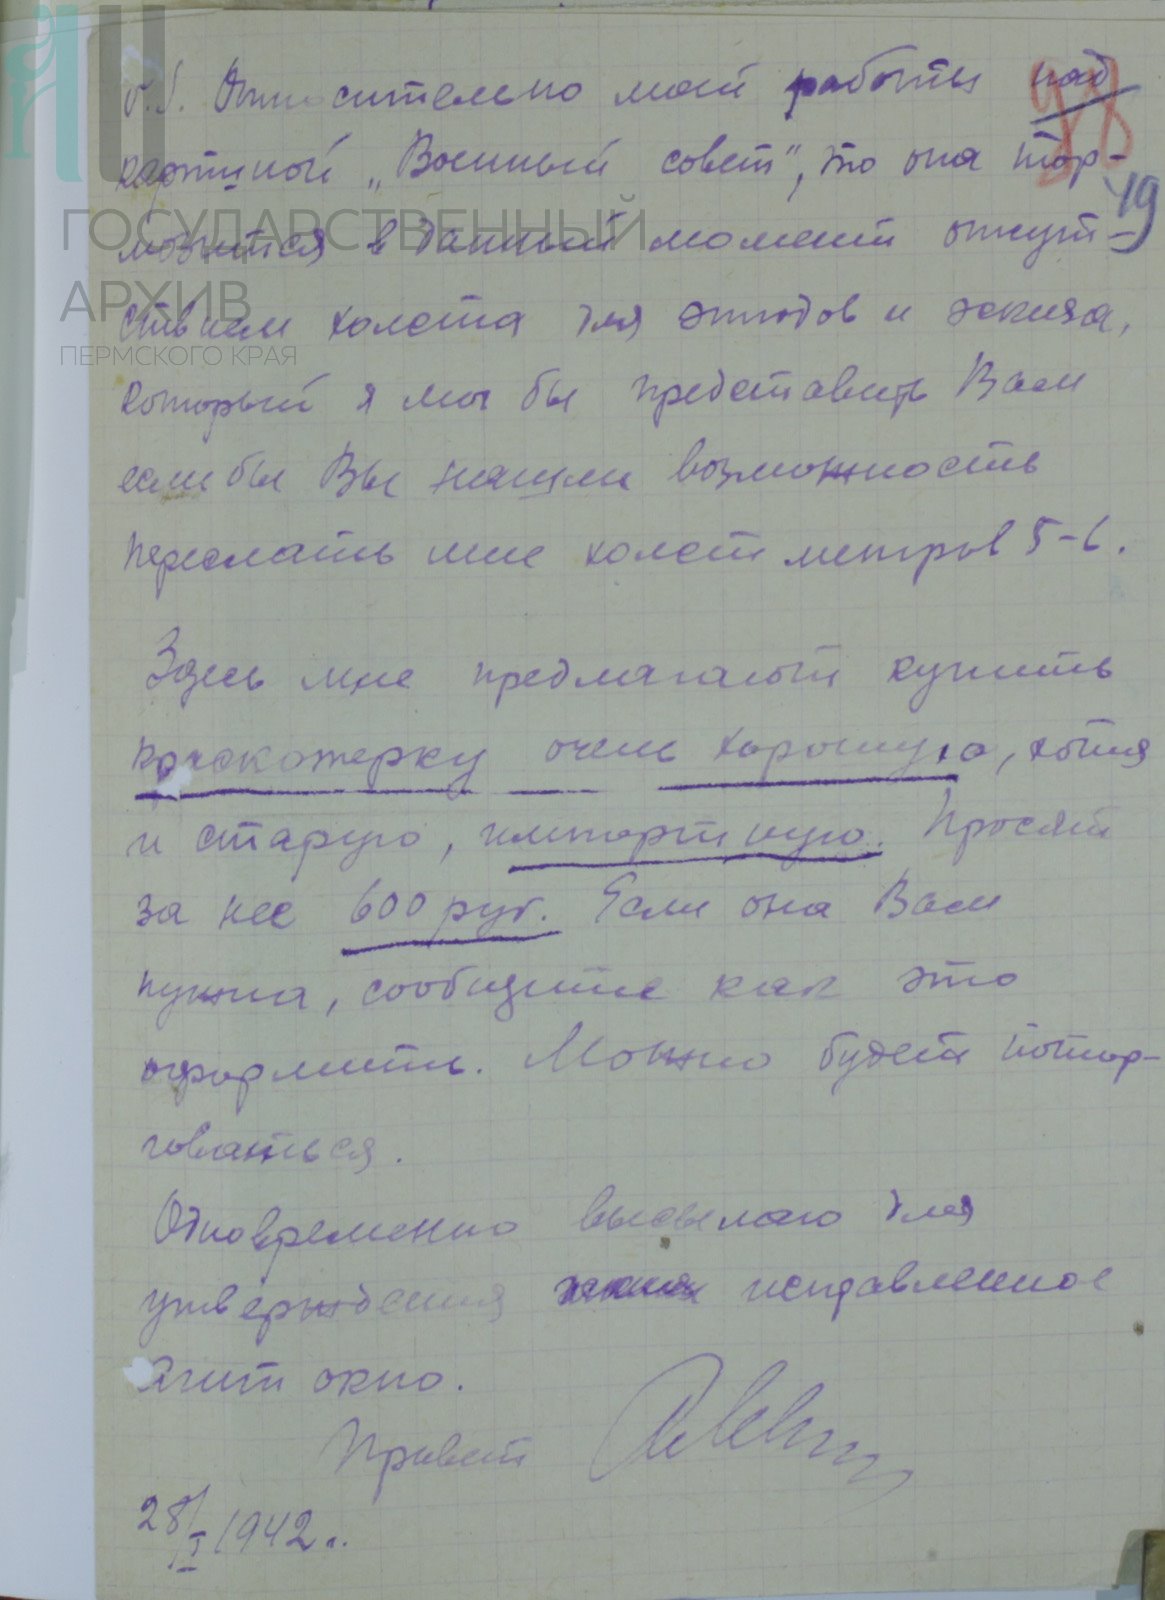 P.S. Относительно моей работы над
картиной „Военный совет“, то она тор-
мозится в данный момент отсут-
ствием холста для этюдов и эскиза,
который я мог бы представить Вам
если бы Вы нашли возможность
переслать мне холст метров 5-6.
Здесь мне предлагают купить
краскотерку очень хорошую, хотя
и старую, импортную. Просят
за нее 600 руб. Если она Вам
нужна, сообщите как это
оформить. Можно будет потор-
говаться.
Одновременно высылаю для
утверждения исправленное
Агит окно.
Привет
28/I 1942 г.
49
ГОСУДАРСТВЕННЫЙ
АРХИВ
ПЕРМСКОГО КРАЯ